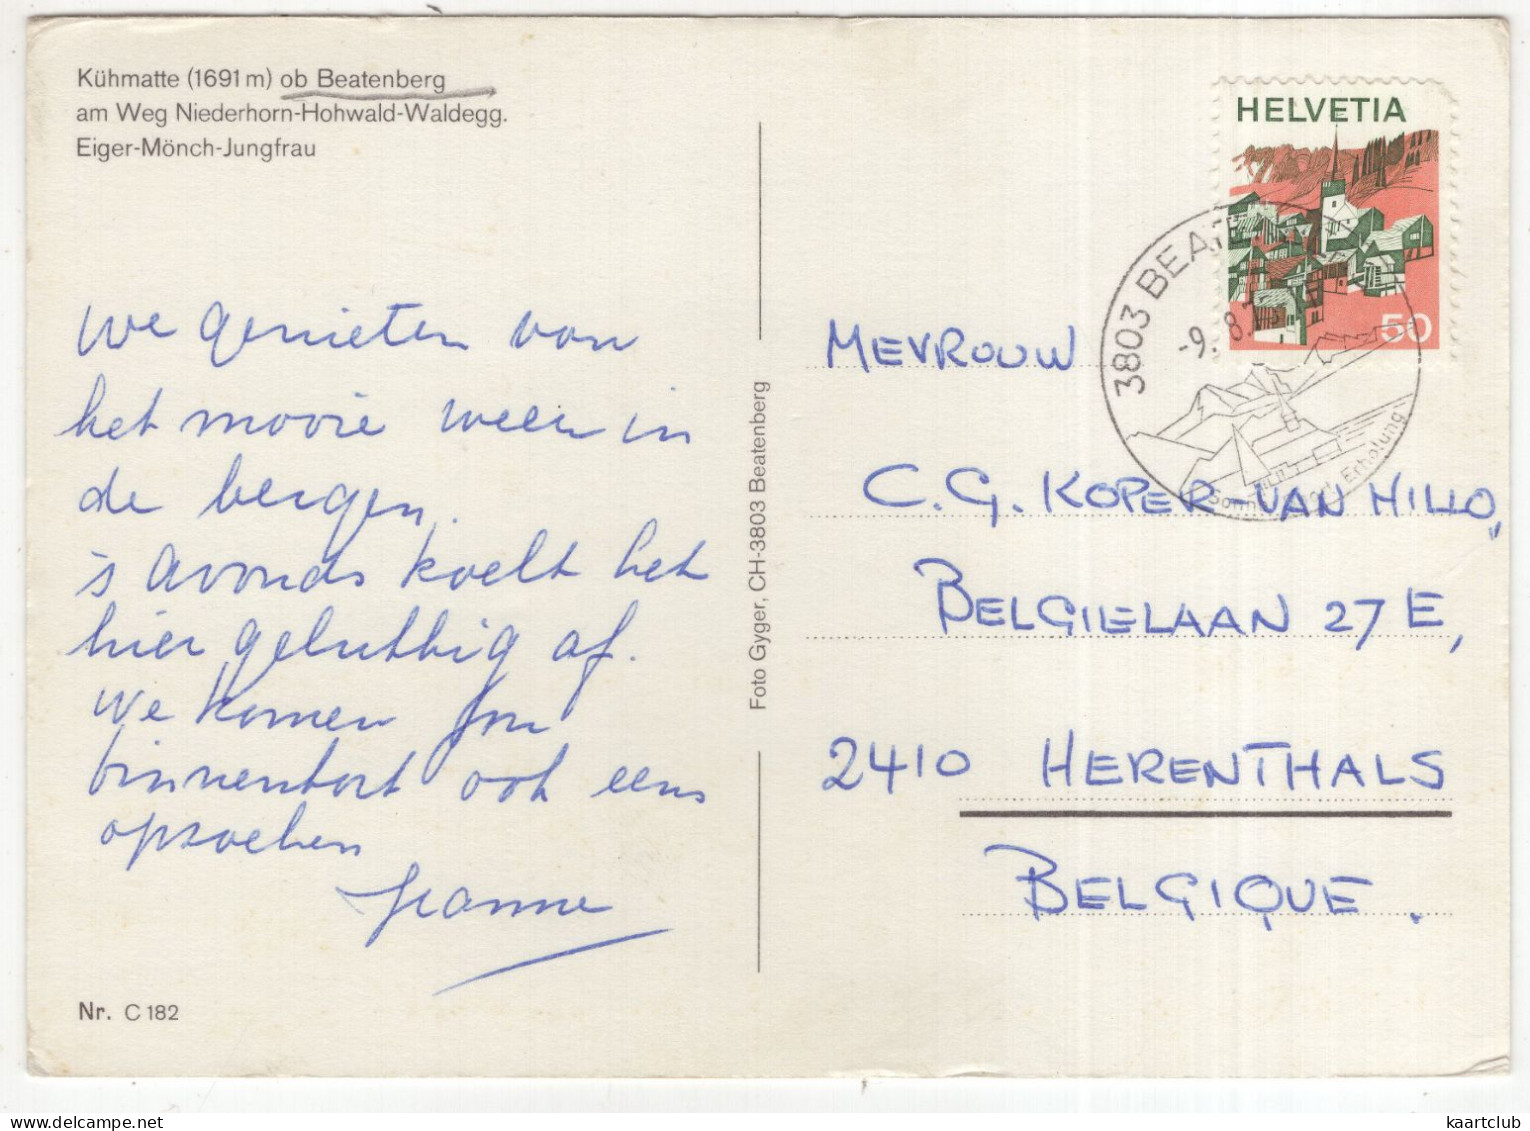 Kühmatte (1691 m) ob Beatenberg
am Weg Niederhorn-Hohwald-Waldegg.
Eiger-Mönch-Jungfrau
we genieten van
het mooie weer in
de bergen.
's avonds koelt het
hier gelukkig af.
We komen jou
binnenkort ook eens
opzoeken
Jeanne
Nr. C 182
Foto Gyger, CH-3803 Beatenberg
HELVETIA
50
3803 BEATE
-9. 8.
Erholung
MEVROUW
C.G. KOPER-VAN HILLO,
BELGIELAAN 27 E,
2410 HERENTHALS
BELGIQUE.
kaartclub